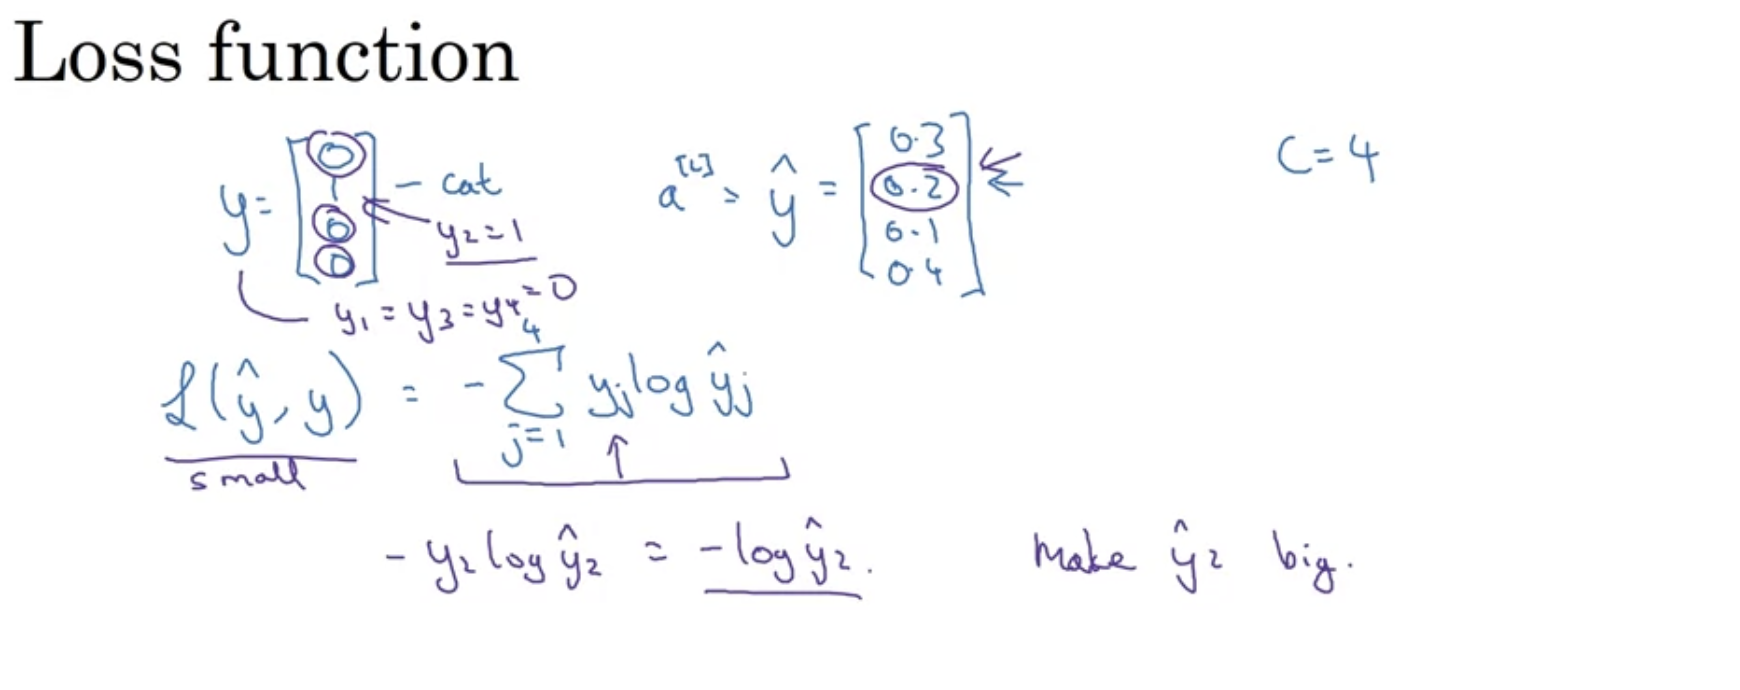 Loss function
y = [0 1 0 0] - cat
y₂ = 1
y₁ = y₃ = y₄ = 0
a^[L] = ŷ = [0.3 0.2 0.1 0.4]
C = 4
ℒ(ŷ, y) = - Σ_{j=1}^{4} y_j log ŷ_j
small
- y₂ log ŷ₂ = - log ŷ₂. Make ŷ₂ big.